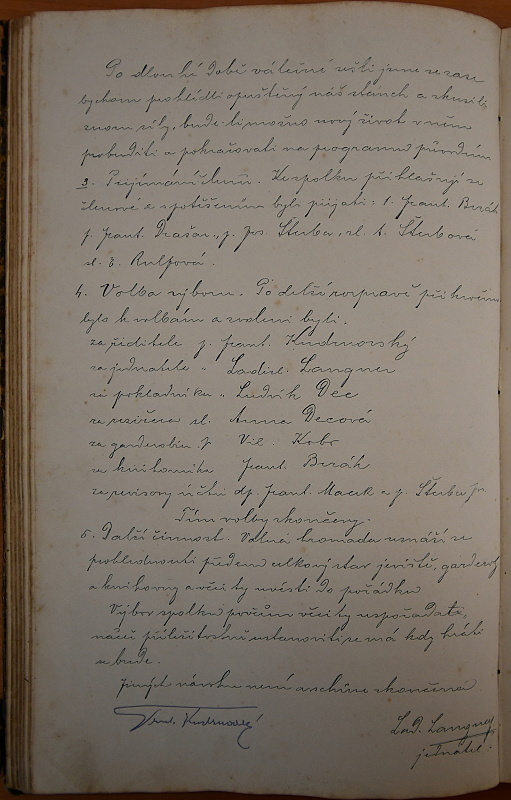 Po dlouhé době válečné sešli jsme se zase
bychom pohlédli opuštěný náš stánek a zkusili
znovu síly, bude-li možno nový život v něm
probuditi a pokračovati na programu původním
3. Přijímání členů. Ke spolku přihlašují se
členové a s potěšením byli přijati: p. Frant. Beráh
p. Frant. Drašar, p. Jos. Šterba, sl. A. Šterbová
sl. E. Rulfová.
4. Volba výboru. Po delší rozpravě přikročeno
bylo k volbám a zvoleni byli.
za řiditele p. Frant. Kudrnovský
za jednatele " Ladisl. Langner
za pokladníka " Ludvík Dec
za režisera sl. Anna Decová
za garderobiera p. Vil. Kobr
za knihovníka Frant. Beráh
za revisory účtů dp. Frant. Macek a p. Šterba jr.
Tím volby skončeny.
5. Další činnost. Valná hromada usnáší se
prohlednouti předem celkový stav jeviště, garderob
a knihovny a věci ty uvésti do pořádku
Výbor spolku pověřen věci ty uspořádati,
načež příležitostně ustanoviti se má kdy hráti
se bude.
Jiných návrhů není a schůze skončena
Frant. Kudrnovský
Lad. Langner
jednatel.